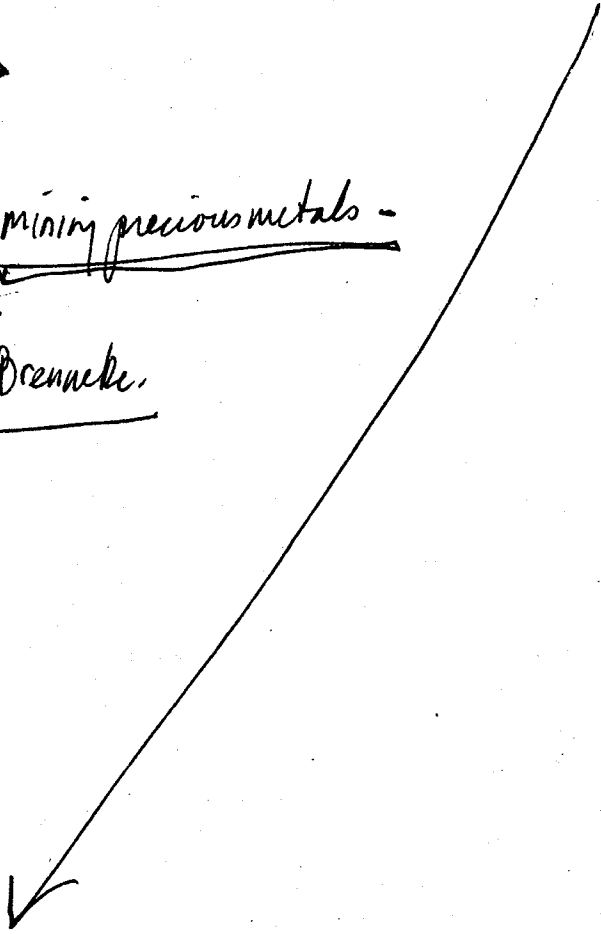 mining precious metals -
Brenneke.